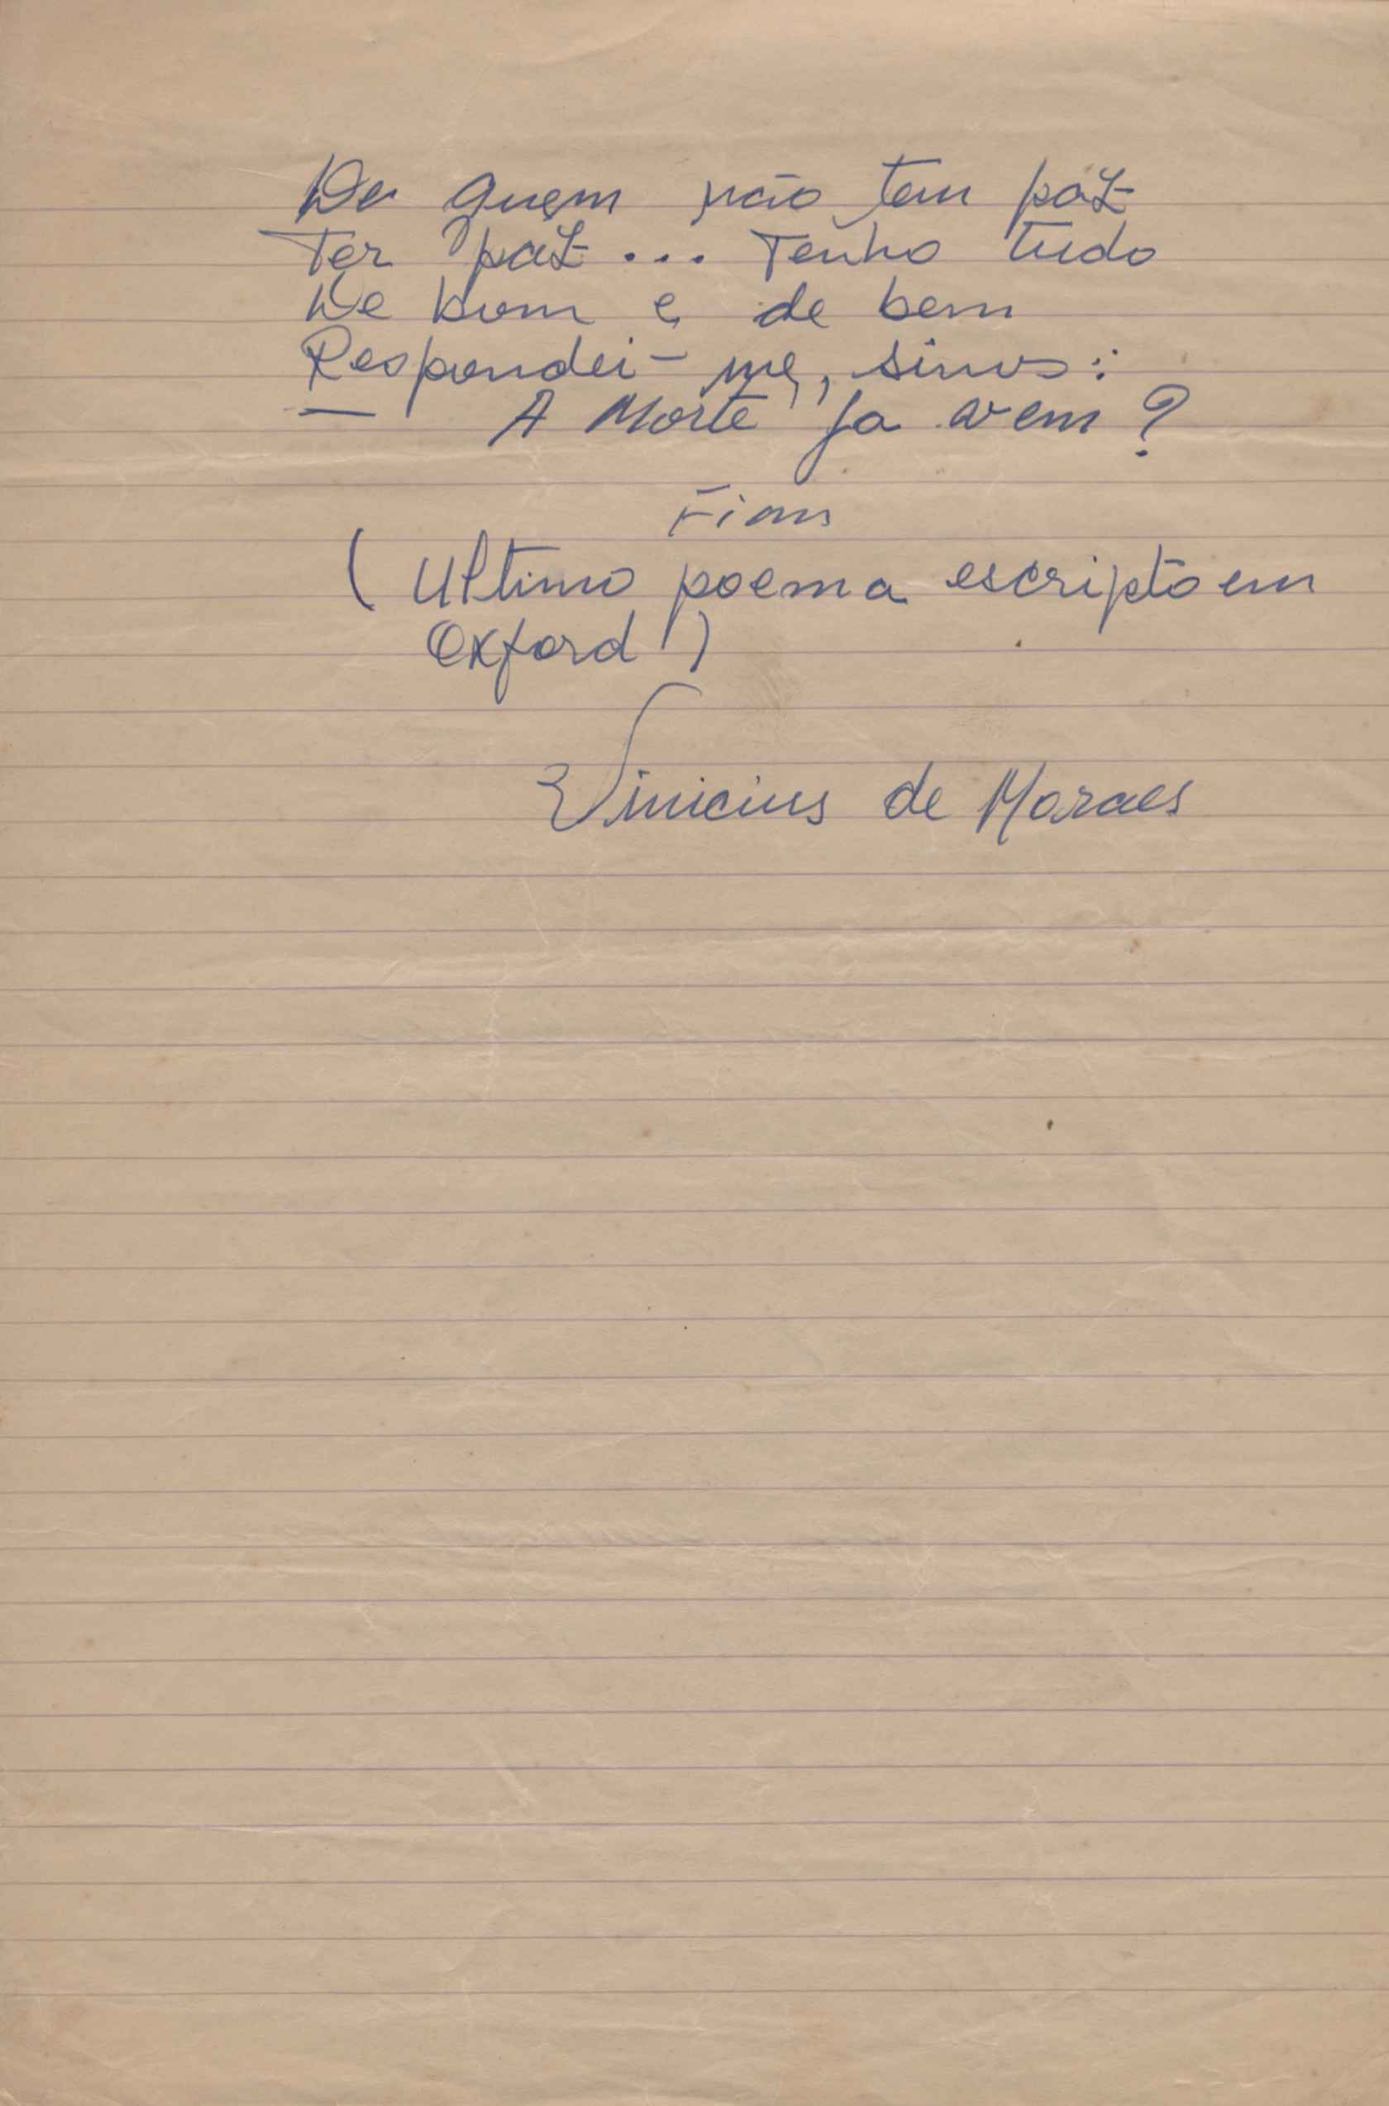 De quem não tem paz
Ter paz... Tenho tudo
De bom e de bem
Respondei-me, sinos:
— A Morte já vem?
Fim
(Ultimo poema escripto em
Oxford)
Vinicius de Moraes